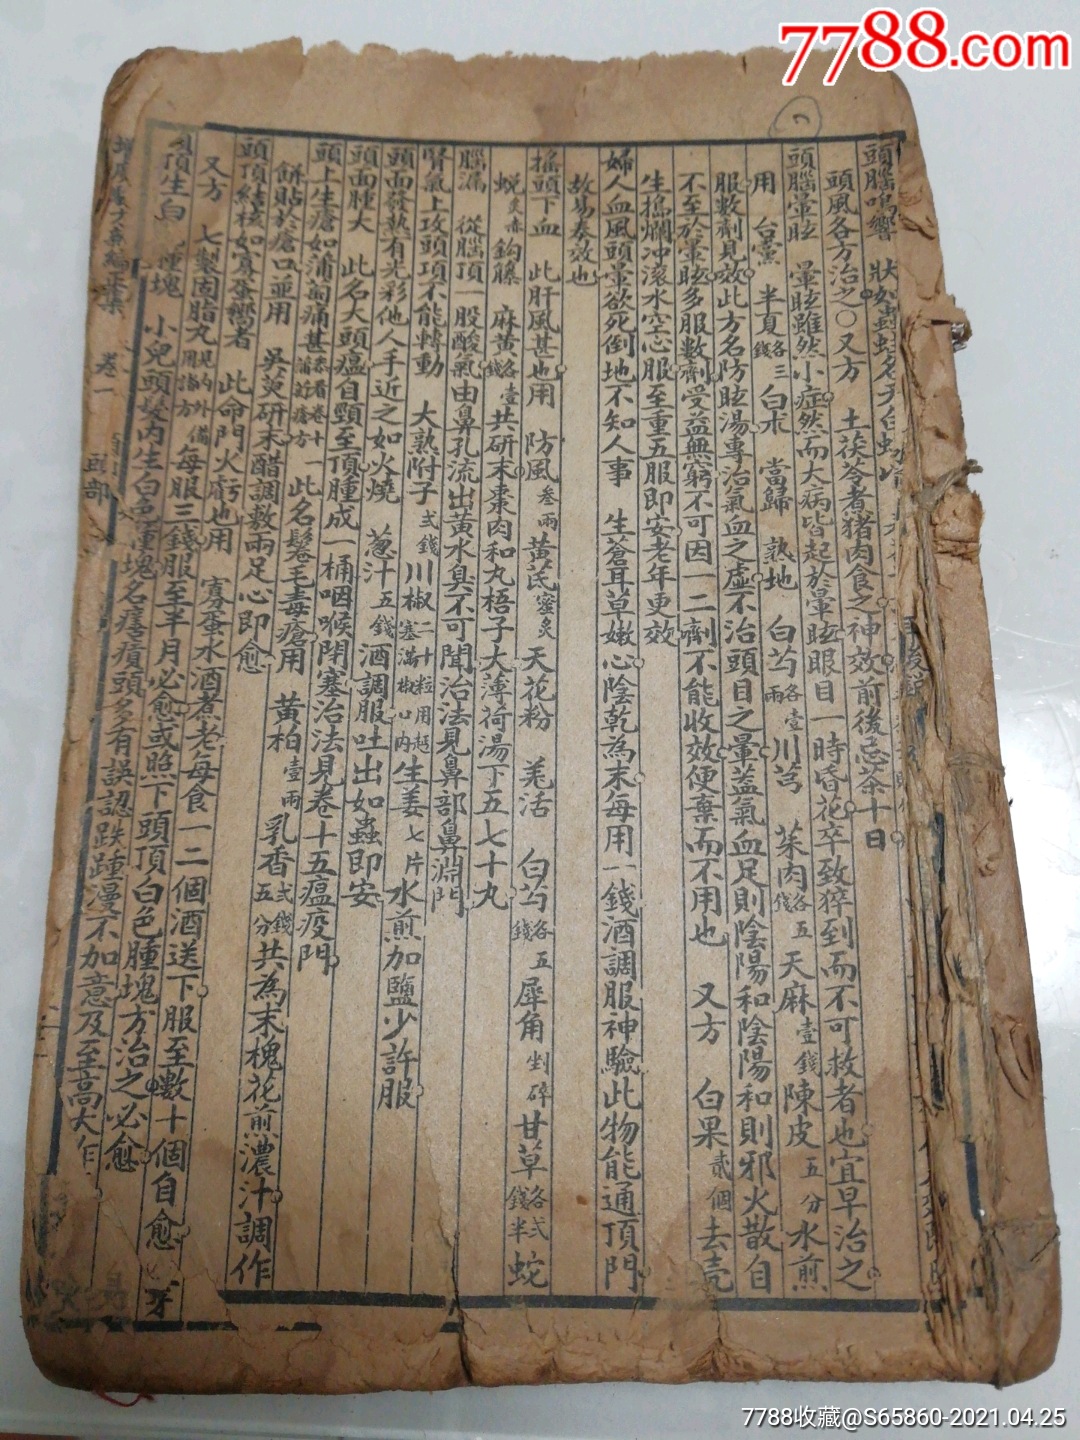 7788.com
頭腦鳴響　狀如蟲蛀名天白蟻
頭風各方治之○又方　土茯苓煮猪肉食之神效前後忌茶十日
頭腦暈眩　暈眩雖然小症然而大病皆起於暈眩眼目一時昏花卒致猝到而不可救者也宜早治之
用　台黨　半夏各三錢　白术　當歸　熟地　白芍各壹兩　川芎　茱肉各五錢　天麻壹錢　陳皮五分　水煎
服數劑見效此方名防眩湯專治氣血之虛不治頭目之暈蓋氣血足則陰陽和陰陽和則邪火散自
不至於暈眩多服數劑受益無窮不可因一二劑不能收效便棄而不用也　又方　白果貳個去壳
生搗爛冲滾水空心服至重五服即安老年更效
婦人血風頭暈欲死倒地不知人事　生蒼耳草嫩心陰乾為末每用一錢酒調服神驗此物能通頂門
故易奏效也
搖頭下血　此肝風甚也用　防風叁兩　黃茋蜜炙　天花粉　羌活　白芍各五錢　犀角剉碎　甘草各弍錢半　蛇
蜕炙赤　鈎藤　麻黃各壹錢　共研末棗肉和丸梧子大薄荷湯下五七十丸
腦漏　從腦頂一股酸氣由鼻孔流出黃水臭不可聞治法見鼻部鼻淵門
腎氣上攻頭項不能轉動　大熟附子弍錢　川椒二十粒用起塞滿椒口内　生姜七片　水煎加鹽少許服
頭面發熱有光彩他人手近之如火燒　葱汁五錢　酒調服吐出如蟲即安
頭面腫大　此名大頭瘟自頸至頂腫成一桶咽喉閉塞治法見卷十五瘟疫門
頭上生瘡如蒲萄痛甚　一此名髮毛毒瘡用　黃柏壹兩　乳香弍錢五分　共為末槐花煎濃汁調作
餅貼於瘡口並用　吳萸研末醋調敷兩足心即愈
頭頂結核如寡蛋樣者　此命門火虧也用　寡蛋水酒煮老每食一二個酒送下服至數十個自愈
又方　七製固脂丸見內外備用諸方　每服三錢服至半月必愈或照下頭頂白色腫塊方治之必愈
頭頂生白色腫塊　小兒頭髮内生白色腫塊名瘩瘠頭多有誤認跌踵漫不加意及至高大作
卷一
頭部
7788收藏@S65860-2021.04.25